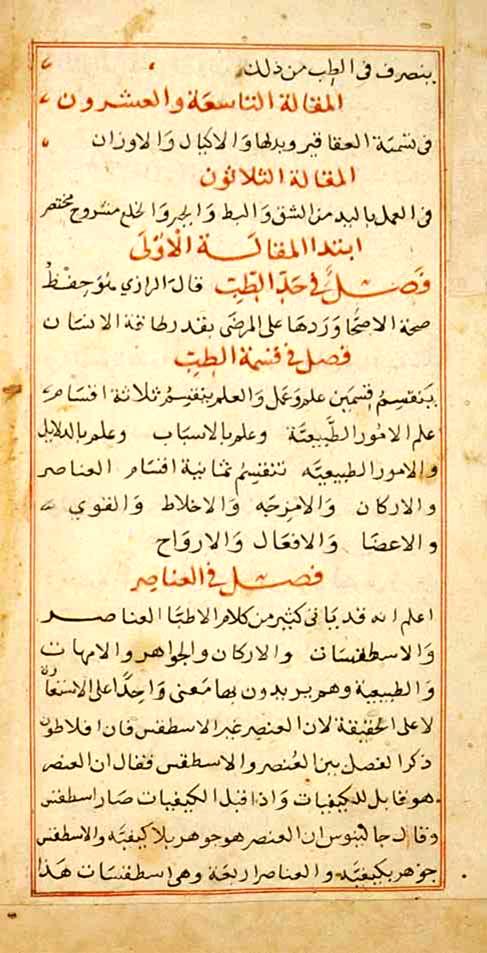 ينصرف في الطب من ذلك
المقالة التاسعة والعشرون
في تسمية العقاقير وبدلها والاكيال والاوزان
المقالة الثلاثون
في العمل باليد من الشق والبط والجبر والخلع مشروح مختصر
ابتدا المقالة الاولى
فصل في حد الطب قال الرازي هو حفظ
صحة الاصحا وردها على المرضى بقدر طاقة الانسان
فصل في قسمة الطب
ينقسم قسمين علم وعمل والعلم ينقسم ثلاثة اقسام
علم الامور الطبيعية وعلم بالاسباب وعلم بالدلايل
والامور الطبيعيه تنقسم ثمانية اقسام العناصر
والاركان والامزجه والاخلاط والقوي
والاعضا والافعال والارواح
فصل في العناصر
اعلم انه قد ياتي كثير من كلام الاطبا العناصر
والاسطقسات والاركان والجواهر والامهات
والطبيعية وهم يريدون بها معنى واحدا على الاستعارة
لا على الحقيقة لان العنصر غير الاسطقس فان افلاطون
ذكر الفصل بين العنصر والاسطقس فقال ان العنصر
هو قابل للكيفيات واذا قبل الكيفيات صار اسطقس
وقال جالينوس ان العنصر هو جوهر بلا كيفيه والاسطقس
جوهر بكيفيه والعناصر اربعة وهي اسطقسات هذا